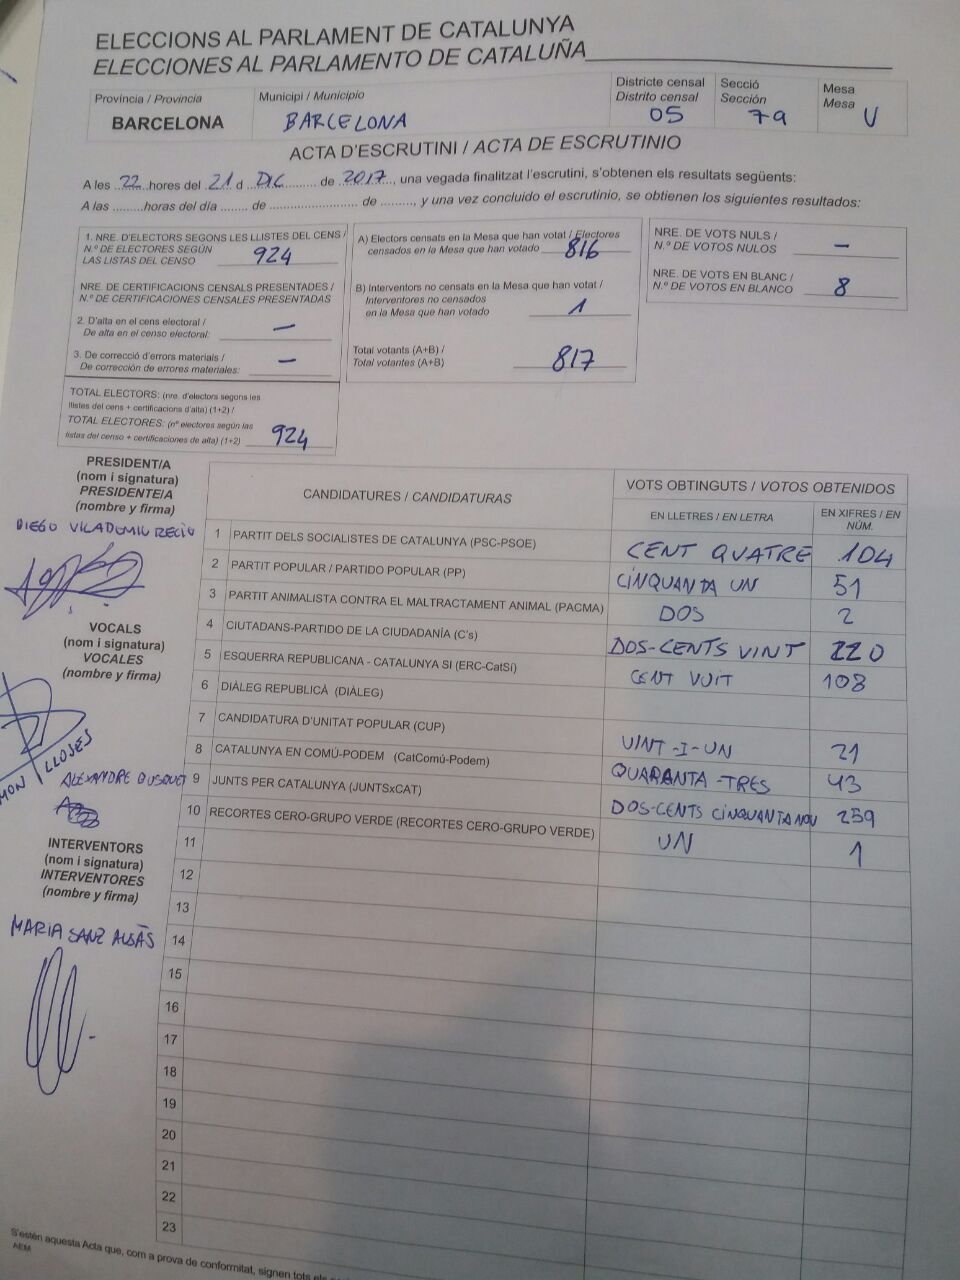 ELECCIONS AL PARLAMENT DE CATALUNYA
ELECCIONES AL PARLAMENTO DE CATALUÑA
Província / Provincia
BARCELONA
Municipi / Municipio
BARCELONA
Districte censal
Distrito censal
05
Secció
Sección
79
Mesa
Mesa
U
ACTA D'ESCRUTINI / ACTA DE ESCRUTINIO
A les 22 hores del 21 d DIC de 2017, una vegada finalitzat l'escrutini, s'obtenen els resultats següents:
A las ........horas del día ....... de ...................... de ........, y una vez concluido el escrutinio, se obtienen los siguientes resultados:
1. NRE. D'ELECTORS SEGONS LES LLISTES DEL CENS /
N.º DE ELECTORES SEGÚN
LAS LISTAS DEL CENSO
924
NRE. DE CERTIFICACIONS CENSALS PRESENTADES /
N.º DE CERTIFICACIONES CENSALES PRESENTADAS
2. D'alta en el cens electoral /
De alta en el censo electoral:
—
3. De correcció d'errors materials /
De corrección de errores materiales:
—
TOTAL ELECTORS: (nre. d'electors segons les
llistes del cens + certificacions d'alta) (1+2) /
TOTAL ELECTORES: (nº electores según las
listas del censo + certificaciones de alta) (1+2)
924
A) Electors censats en la Mesa que han votat / Electores
censados en la Mesa que han votado
816
B) Interventors no censats en la Mesa que han votat /
Interventores no censados
en la Mesa que han votado
1
Total votants (A+B) /
Total votantes (A+B)
817
NRE. DE VOTS NULS /
N.º DE VOTOS NULOS
—
NRE. DE VOTS EN BLANC /
N.º DE VOTOS EN BLANCO
8
PRESIDENT/A
(nom i signatura)
PRESIDENTE/A
(nombre y firma)
DIEGO VILADOMIU RECIO
VOCALS
(nom i signatura)
VOCALES
(nombre y firma)
LLOSES
ALEXANDRE BUSQUET
INTERVENTORS
(nom i signatura)
INTERVENTORES
(nombre y firma)
MARIA SANZ
CANDIDATURES / CANDIDATURAS
VOTS OBTINGUTS / VOTOS OBTENIDOS
EN LLETRES / EN LETRA
EN XIFRES / EN NÚM.
1 PARTIT DELS SOCIALISTES DE CATALUNYA (PSC-PSOE) CENT QUATRE 104
2 PARTIT POPULAR / PARTIDO POPULAR (PP) CINQUANTA UN 51
3 PARTIT ANIMALISTA CONTRA EL MALTRACTAMENT ANIMAL (PACMA) DOS 2
4 CIUTADANS-PARTIDO DE LA CIUDADANÍA (C's) DOS-CENTS VINT 220
5 ESQUERRA REPUBLICANA - CATALUNYA SI (ERC-CatSí) CENT VUIT 108
6 DIÀLEG REPUBLICÀ (DIÀLEG)
7 CANDIDATURA D'UNITAT POPULAR (CUP) VINT-I-UN 21
8 CATALUNYA EN COMÚ-PODEM (CatComú-Podem) QUARANTA-TRES 43
9 JUNTS PER CATALUNYA (JUNTSxCAT) DOS-CENTS CINQUANTA NOU 259
10 RECORTES CERO-GRUPO VERDE (RECORTES CERO-GRUPO VERDE) UN 1
11
12
13
14
15
16
17
18
19
20
21
22
23
S'estén aquesta Acta que, com a prova de conformitat, signen tots els
AEM